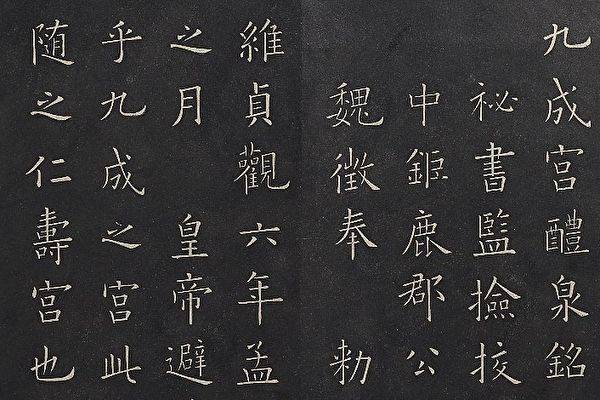 九成宮醴泉銘
秘書監撿挍
中鉅鹿郡公
魏徵奉勅
維貞觀六年孟
之月皇帝避
乎九成之宮此
随之仁壽宮也